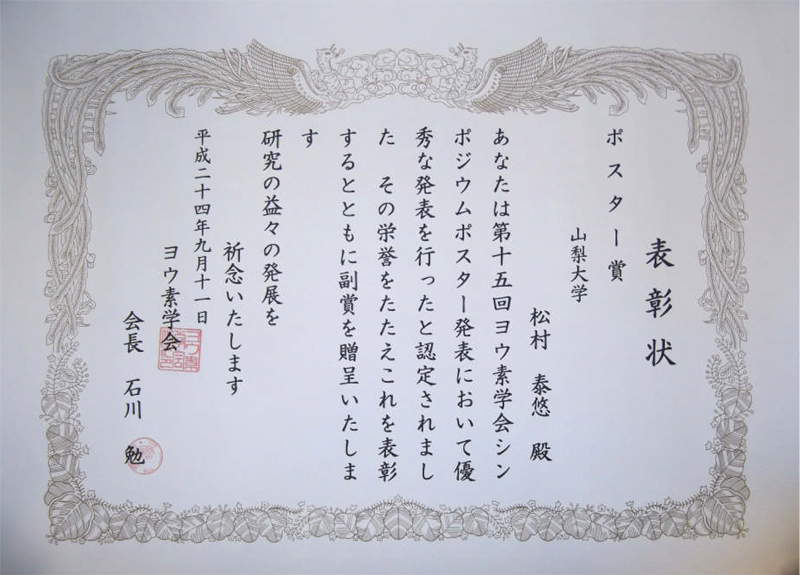 表彰状
ポスター賞
山梨大学
松村 泰悠 殿
あなたは第十五回ヨウ素学会シン
ポジウムポスター発表において優
秀な発表を行ったと認定されまし
た その栄誉をたたえこれを表彰
するとともに副賞を贈呈いたしま
す
研究の益々の発展を
祈念いたします
平成二十四年九月十一日
ヨウ素学会
会長 石川 勉